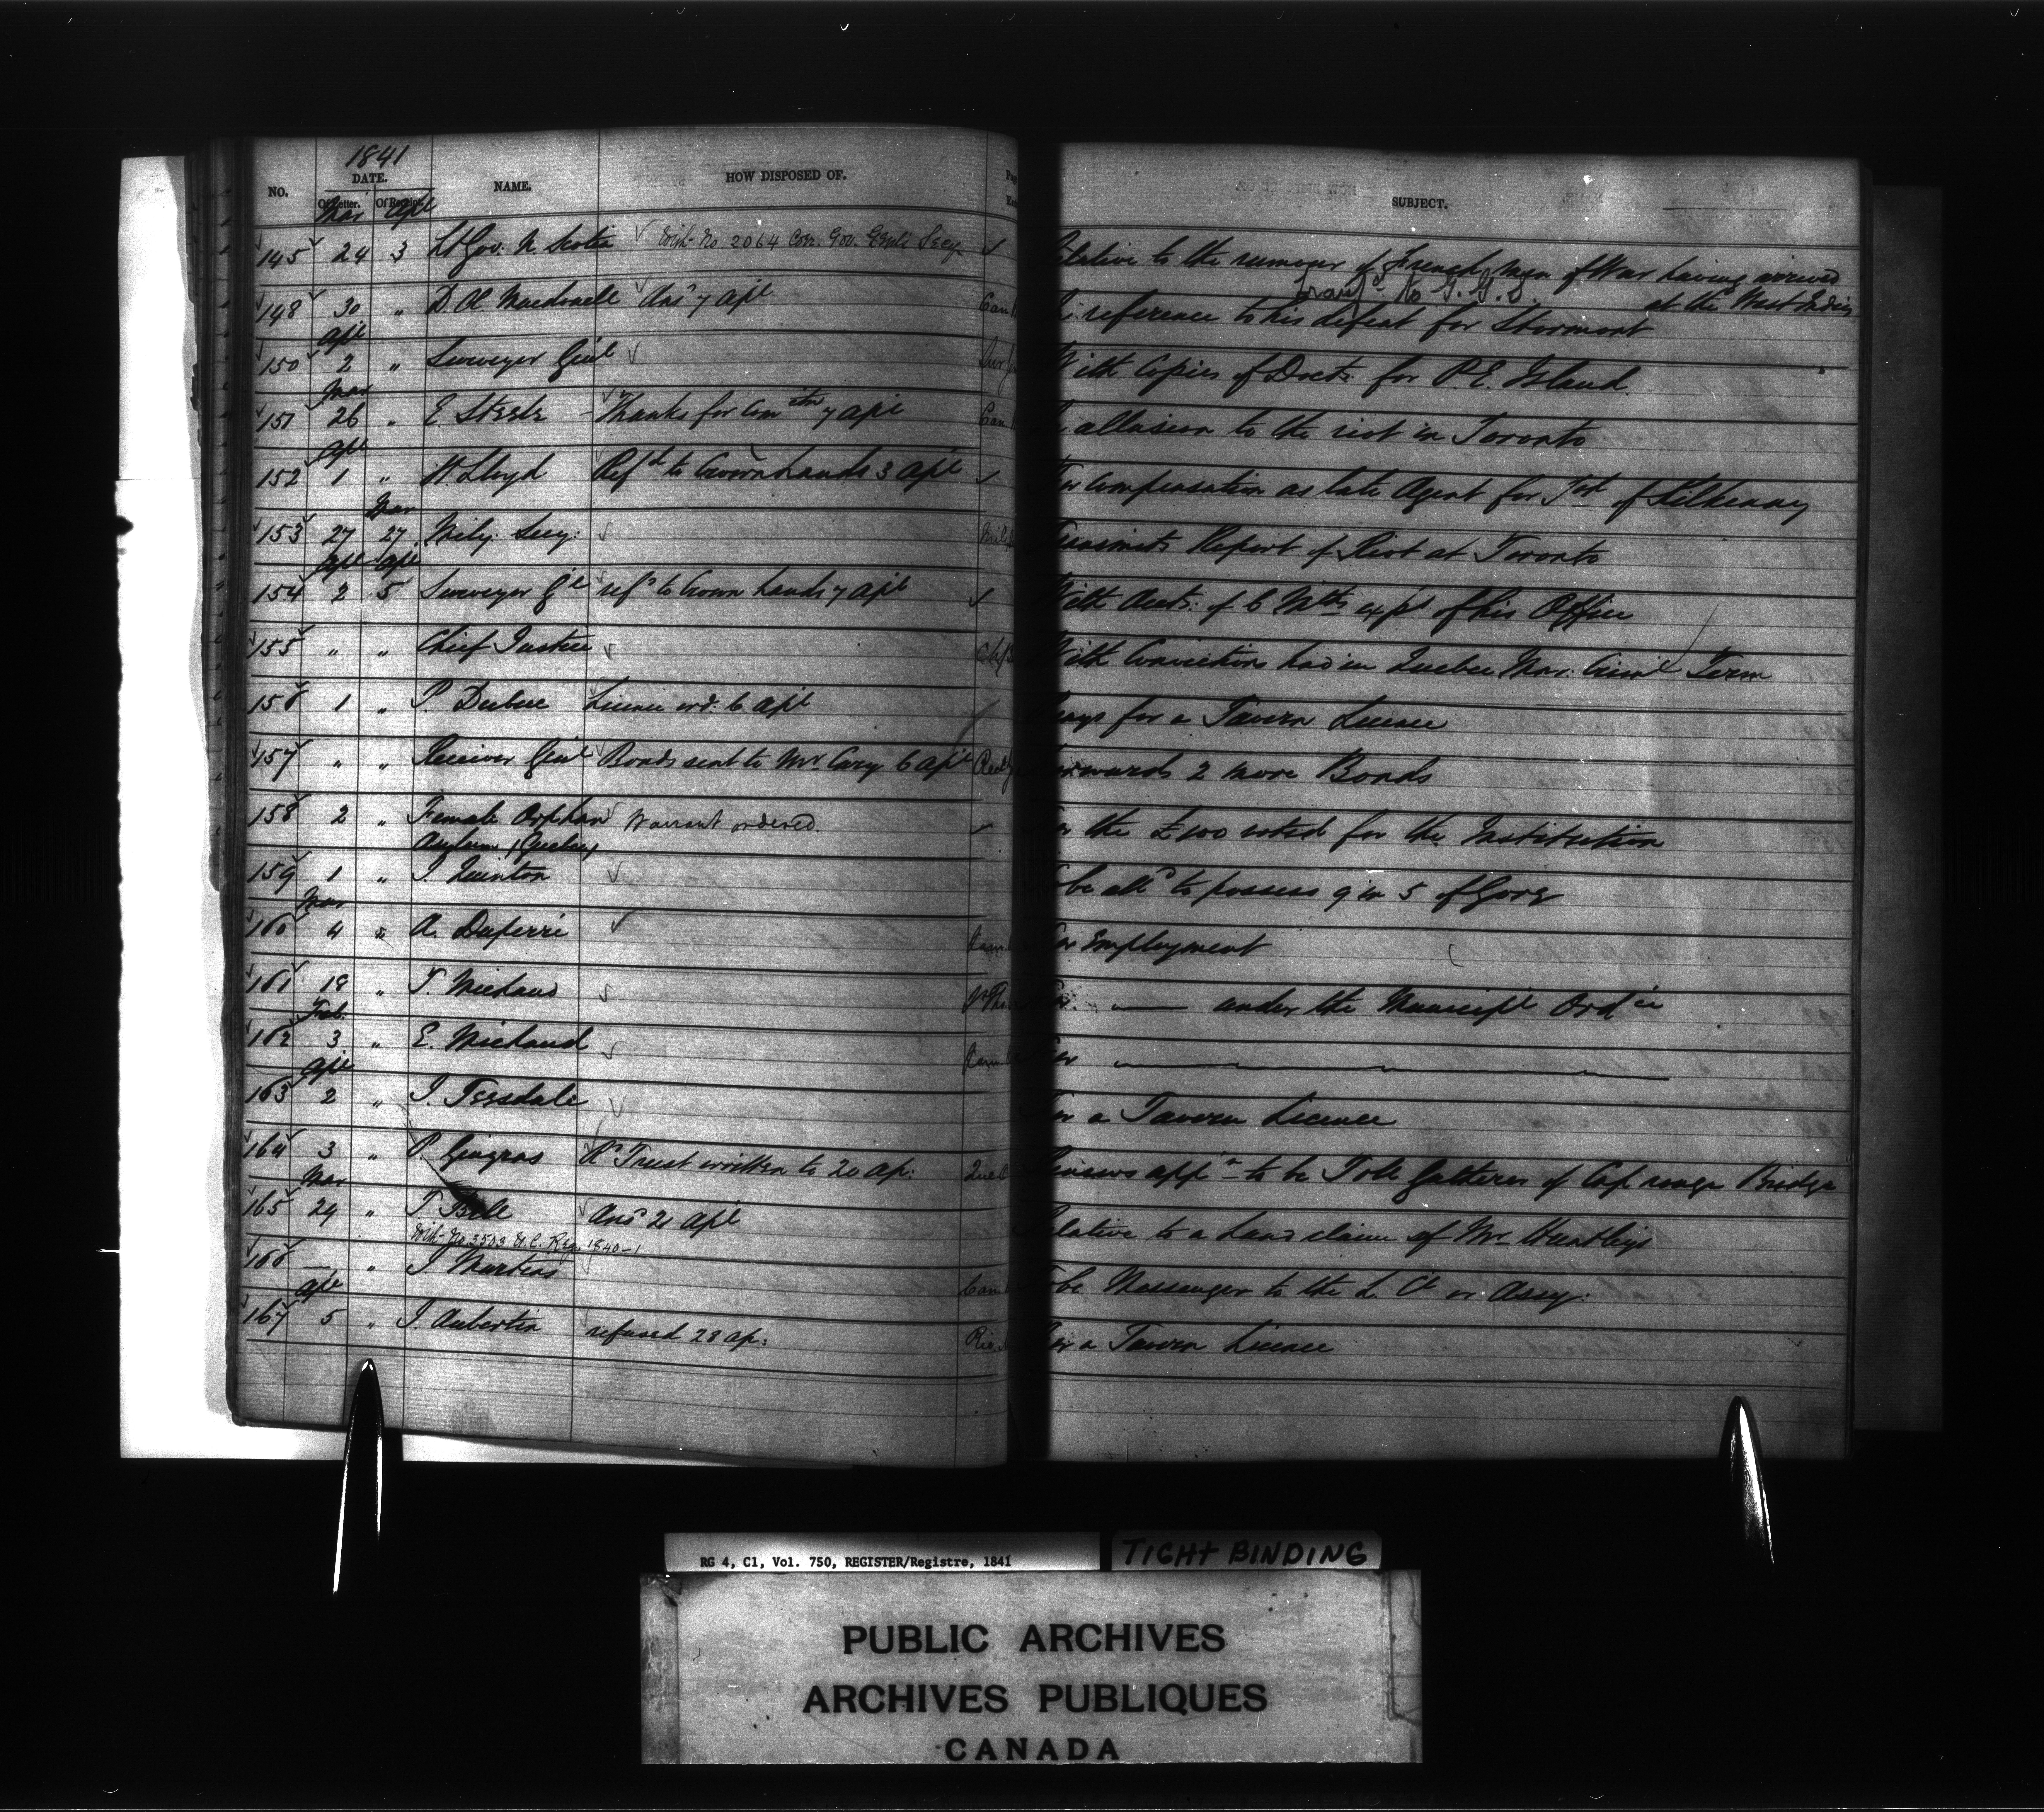 1841
NO. DATE. NAME. HOW DISPOSED OF. SUBJECT.
Of Letter. Of Receipt.
Mar Apl
145 24 3 Lt Gov. N. Scotia With No 2064 Corr. Gov. Genl's Secy relative to the rumour of French Men of War having arrived
at the West Indies
Transfd to G. G. S.
148 30 " D. Æ. Macdonell Ansd 7 Apl In reference to his defeat for Stormont
Apl
150 2 " Surveyor Genl With Copies of Docts for P.E. Island
Mar
151 26 " E Steele Thanks for Comctn 7 Apl In allusion to the riot in Toronto
Apl
152 1 " W Lloyd Refd to Crown Lands 3 Apl For Compensation as late Agent for Tst of Kilkenny
Mar
153 27 27 Mily. Secy: Transmits Report of Riot at Toronto
Apl Apl
154 2 5 Surveyor Gl refd to Crown Lands 7 Apl With Accts. of 6 Mths exps of his Office
155 " " Chief Justice With Convictions had in Quebec Mar: Criml Term
156 1 " P. Dubuc Licence ord. 6 Apl Prays for a Tavern Licence
157 " " Receiver Genl Bonds sent to Mr Cary 6 Apl Forwards 2 more Bonds
158 2 " Female Orphan Warrant ordered. For the £100 voted for the Institution
Asylum (Quebec)
159 1 " J. Quinton To be alld to possess 9 in 5 of Gore
Mar
160 4 " A. For Employment
161 18 " T. Michaud For —— under the Municipl Ordce
Feb.
162 3 " E. Michaud For ——
Apl
163 2 " J. Teesdale For a Tavern Licence
164 3 " P. Gingras Rd Trust written to 20 Ap: Renews appn to be Tole Gatherer of Cap rouge Bridge
Mar
165 24 " T. Bell Ansd 21 Apl Relative to a Land claim of Mr Huntley's
With No 3503 Reg. 1840-1
166 — " J. Martens To be Messenger to the L. Cl or Assy:
Apl
167 5 " J. Aubertin refused 28 Ap: For a Tavern Licence
RG 4, C1, Vol. 750, REGISTER/Registre, 1841
TIGHT BINDING
PUBLIC ARCHIVES
ARCHIVES PUBLIQUES
CANADA